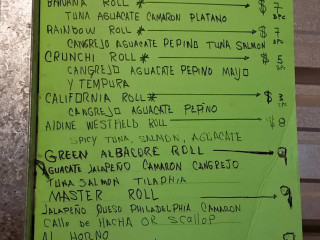 BANANA ROLL * $ 7
TUNA AGUACATE CAMARON PLATANO
RAINBOW ROLL * $ 7
CANGREJO AGUACATE PEPINO TUNA SALMON
CRUNCHI ROLL $ 5
CANGREJO AGUACATE PEPINO MAYO
Y TEMPURA
CALIFORNIA ROLL * $ 3
CANGREJO AGUACATE PEPINO
WESTFIELD ROLL $ 8
SPICY TUNA, SALMON, AGUACATE
GREEN ALBACORE ROLL
AGUACATE JALAPEÑO CAMARON CANGREJO
TUNA SALMON TILAPHIA
MASTER ROLL
JALAPEÑO QUESO PHILADELPHIA CAMARON
CALLO de HACHA OR SCALLOP
AL HORNO